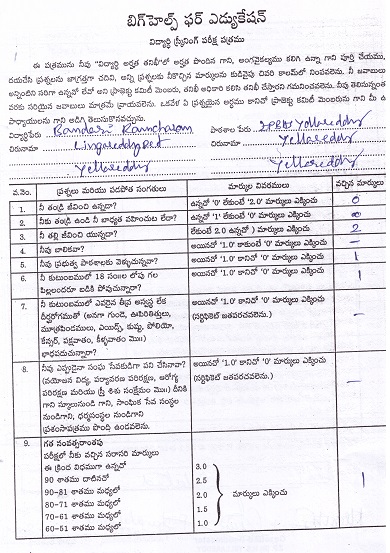 బిగ్‌హెల్ప్ ఫర్ ఎడ్యుకేషన్
విద్యార్థి స్క్రీనింగ్ పరీక్ష పత్రము
ఈ పత్రమును నీవు "విద్యార్థి అర్హత తనిఖీ"లో అర్హత పొందిన గాని, అంగవైకల్యము కలిగి ఉన్నా గాని పూర్తి చేయుము,
దయచేసి ప్రశ్నలను జాగ్రత్తగా చదివి, అన్ని ప్రశ్నలకు నీకొచ్చిన మార్కులను కుడివైపు చివరి కాలమ్‌లో నింపవలెను. నీ జవాబులు
అన్నింటిని సరిగా ఉన్నావో లేవో అని ప్రాజెక్టు కమిటీ మెంబరు, తనిఖీ అధికారి కలిసి తనిఖీ చేస్తారని గమనించవలెను. నీవు తెలిసినంతత
వరకు సరియైన జవాబులు మాత్రమే వ్రాయవలెను. ఒకవేళ ఏ ప్రశ్నయైన అర్థము కానిచో ప్రాజెక్టు కమిటీ మెంబరును గాని మీ ఉ
పాధ్యాయులను గాని అడిగి తెలుసుకొనవచ్చును.
విద్యార్థిపేరు Bandari Ramchalam పాఠశాల పేరు ZPHS Yellareddy
చిరునామా Lingareddypet చిరునామా Yellareddy
Yellareddy Yellareddy
వ.నెం. ప్రశ్నలు మరియు వడపోత సంగతులు మార్కుల వివరములు వచ్చిన మార్కులు
1. నీ తండ్రి జీవించి ఉన్నడా? ఉన్నచో '0' లేకుంటే '2.0' మార్కులు ఎక్కించు 0
2. నీకు తండ్రి ఉండి నీ బాధ్యత వహించుట లేదా? ఉన్నచో '1' లేకుంటే '0' మార్కులు ఎక్కించు 0
3. నీ తల్లి జీవించి యున్నదా? లేకుంటే 2.0 ఉన్నచో ) మార్కులు ఎక్కించు 2
4. నీవు బాలికవా? అయినచో '1.0' కాకుంటే '0' మార్కులు ఎక్కించు –
5. నీవు ప్రభుత్వ పాఠశాలకు వెళ్ళుచున్నావా? అయినచో '1.0' కానిచో '0' మార్కులు ఎక్కించు 1
6. నీ కుటుంబములో 18 సం॥ల లోపు గల
పిల్లలందరూ బడికి పోవుచున్నారా? అయినచో '1.0' కానిచో '0' మార్కులు ఎక్కించు 1
7. నీ కుటుంబములో ఎవరైన తీవ్ర అస్వస్థ లేక
దీర్ఘరోగముతో (అనగా గుండె, ఊపిరితిత్తులు,
మూత్రపిండములు, ఎయిడ్స్, కుష్ఠు, పోలియో,
కేన్సర్, పక్షవాతం, కీళ్ళవాతం మొ॥)
బాధపడుచున్నారా? అయినచో '1.0' కానిచో '0' మార్కులు ఎక్కించు
(సర్టిఫికెట్ జతపరచవలెను.) –
8. నీవు ఎప్పుడైనా సంఘ సేవకుడిగా పని చేసినావా?
(వయోజన విద్య, పర్యావరణ పరిరక్షణ, ఆరోగ్య
పరిరక్షణ మరియు స్త్రీ శిశు సంక్షేమం మొ॥) దీనికి
గాని స్కూలునుండి గాని, సాంఘిక సేవ సంస్థల
నుండిగాని; ధర్మసంస్థల నుండిగాని
ప్రశంసాపత్రము పొంది ఉండవలెను. అయినచో '1.0' కానిచో '0' మార్కులు ఎక్కించు
(సర్టిఫికెట్ జతపరచవలెను.) –
9. గత సంవత్సరాంతపు
పరీక్షలో నీకు వచ్చిన సరాసరి మార్కులు
ఈ క్రింద విధముగా ఉన్నచో
90 శాతము దాటినచో 3.0
90-81 శాతము మధ్యలో 2.5
80-71 శాతము మధ్యలో 2.0 మార్కులు ఎక్కించు 1
70-61 శాతము మధ్యలో 1.5
60-51 శాతము మధ్యలో 1.0